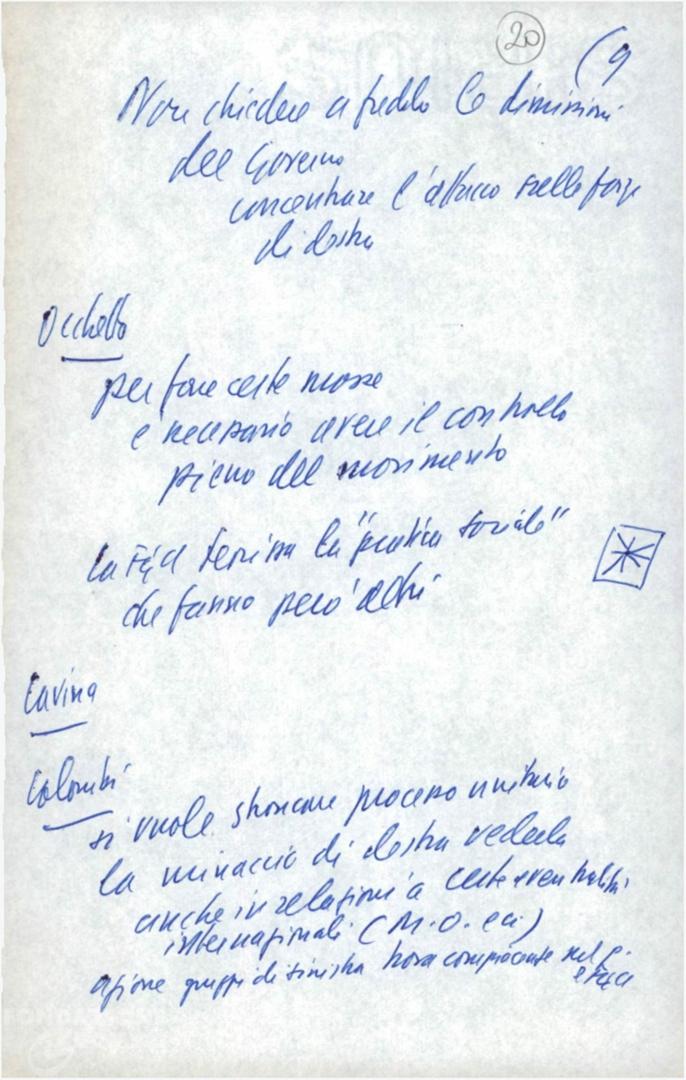 20
(9
Non chiedere a freddo le dimissioni
del Governo
concentrare l'attacco sulle forze
di destra
Occhetto
per fare certe mosse
è necessario avere il controllo
pieno del movimento
la "pratica sociale"
che fanno però altri
Cavina
Colombi
si vuole stroncare processo unitario
la minaccia di destra vederla
anche in relazione a certe eventualità
internazionali (M.O. ecc)
azione gruppi di sinistra trova compiacente nel